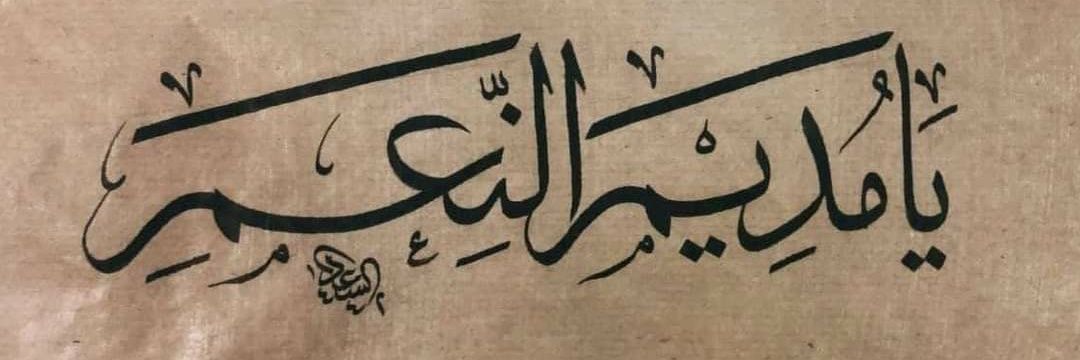 يَا مُدِيْمَ النِّعَمِ
السعدي